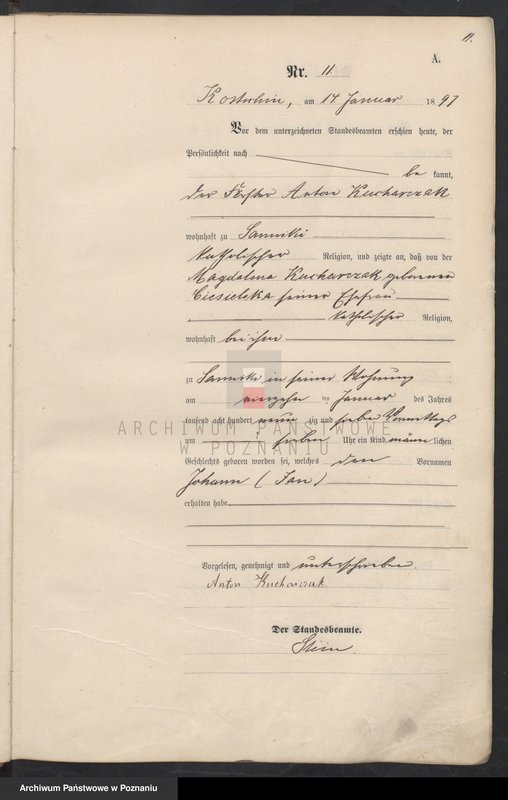 11.
A.
Nr. 11
Kostschin, am 14 Januar 1897
Vor dem unterzeichneten Standesbeamten erschien heute, der
Persönlichkeit nach
be kannt,
der Förster Anton Kucharczak
wohnhaft zu Sanniki
katholischer Religion, und zeigte an, daß von der
Magdalena Kucharczak geborenen
Ciesielska seiner Ehefrau
katholischer Religion,
wohnhaft bei ihm
zu Sanniki in seiner Wohnung
am ten Januar des Jahres
tausend acht hundert neun zig und sieben Vormittags
um sieben Uhr ein Kind männ lichen
Geschlechts geboren worden sei, welches den Vornamen
Johann (Jan)
erhalten habe.
Vorgelesen, genehmigt und unterschrieben
Anton Kucharczak
Der Standesbeamte.
Stein.
ARCHIWUM PAŃSTWOWE
W POZNANIU
Archiwum Państwowe w Poznaniu